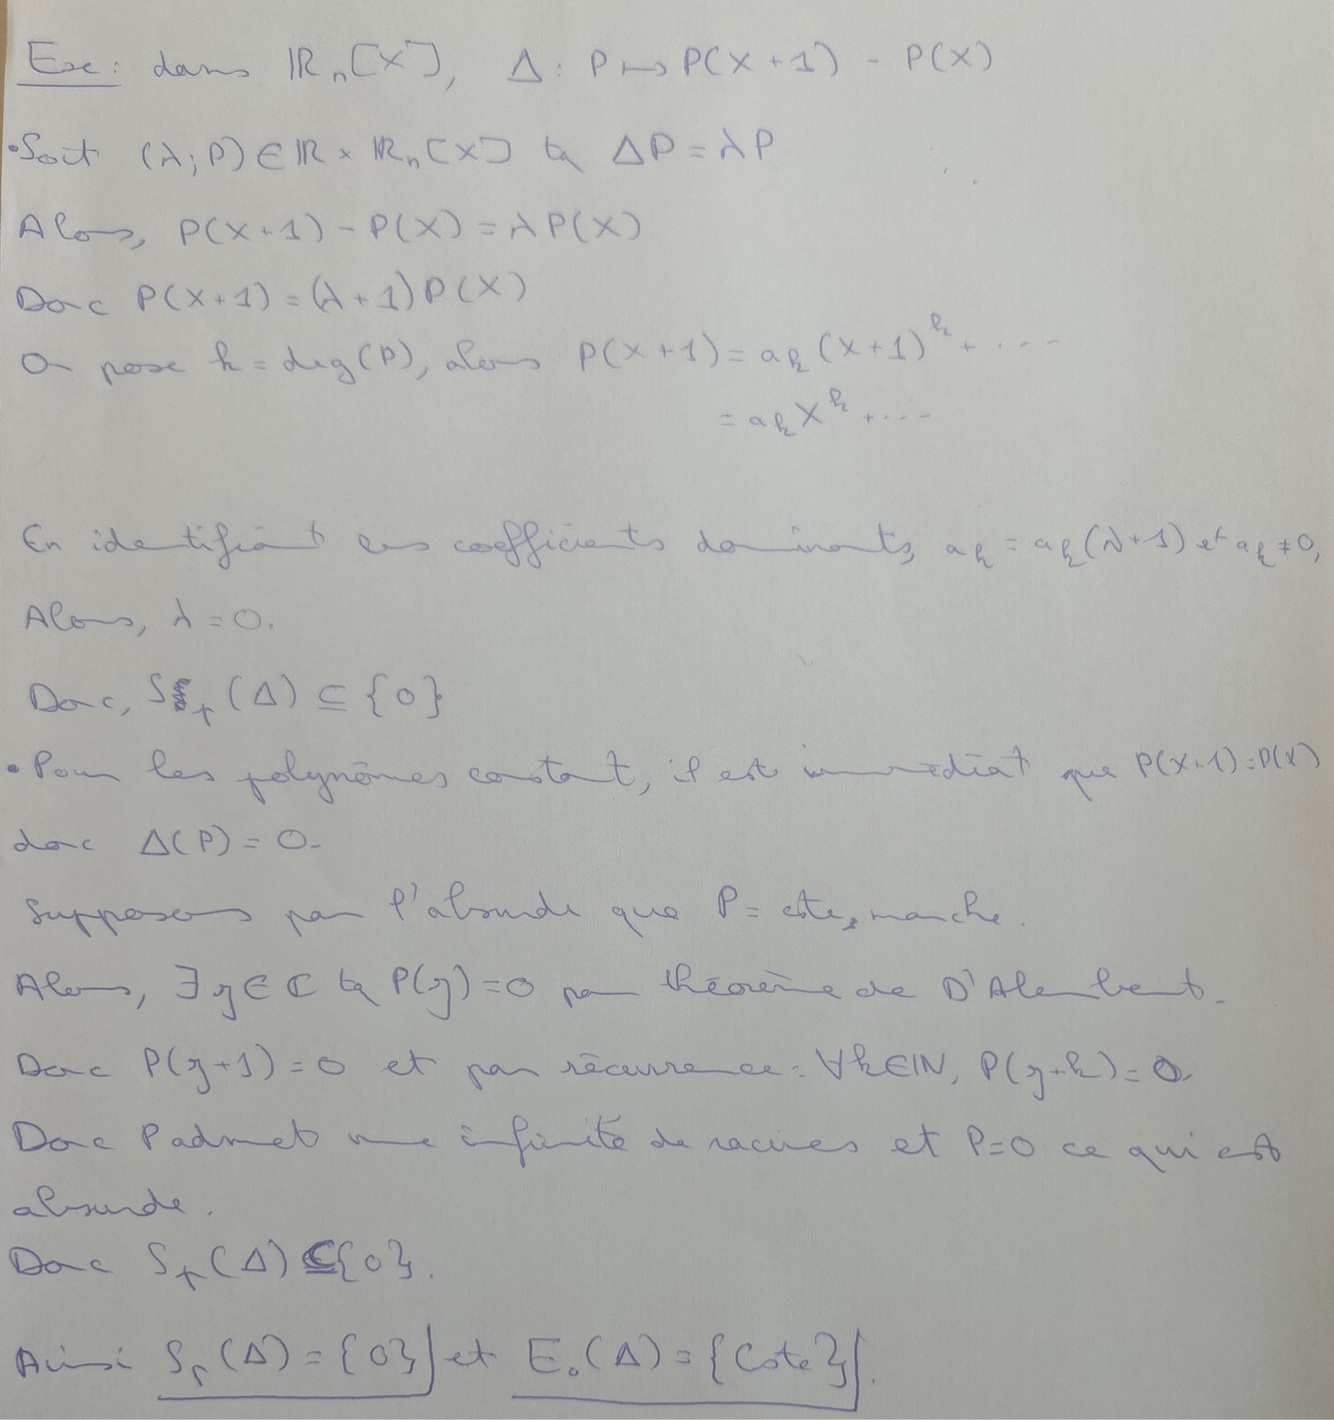 Exe: dans ℝₙ[X], Δ: P ↦ P(X+1) - P(X)
• Soit (λ; P) ∈ ℝ × ℝₙ[X] tq ΔP = λP
Alors, P(X+1) - P(X) = λP(X)
Donc P(X+1) = (λ+1)P(X)
On pose k = deg(P), alors P(X+1) = aₖ(X+1)ᵏ + ....
= aₖXᵏ + ....
En identifiant les coefficients dominants, aₖ = aₖ(λ+1) et aₖ ≠ 0,
Alors, λ = 0.
Donc, Sp(Δ) ⊆ {0}
• Pour les polynômes constant, il est immédiat que P(X+1) = P(X)
donc Δ(P) = 0.
Supposons par l'absurde que P = cste, marche.
Alors, ∃ z ∈ ℂ tq P(z) = 0 par théorème de D'Alembert.
Donc P(z+1) = 0 et par récurrence: ∀k ∈ ℕ, P(z+k) = 0.
Donc P admet une infinité de racines et P = 0 ce qui est
absurde.
Donc Sp(Δ) ⊆ {0}.
Ainsi Sp(Δ) = {0} et E₀(Δ) = {Cste}.